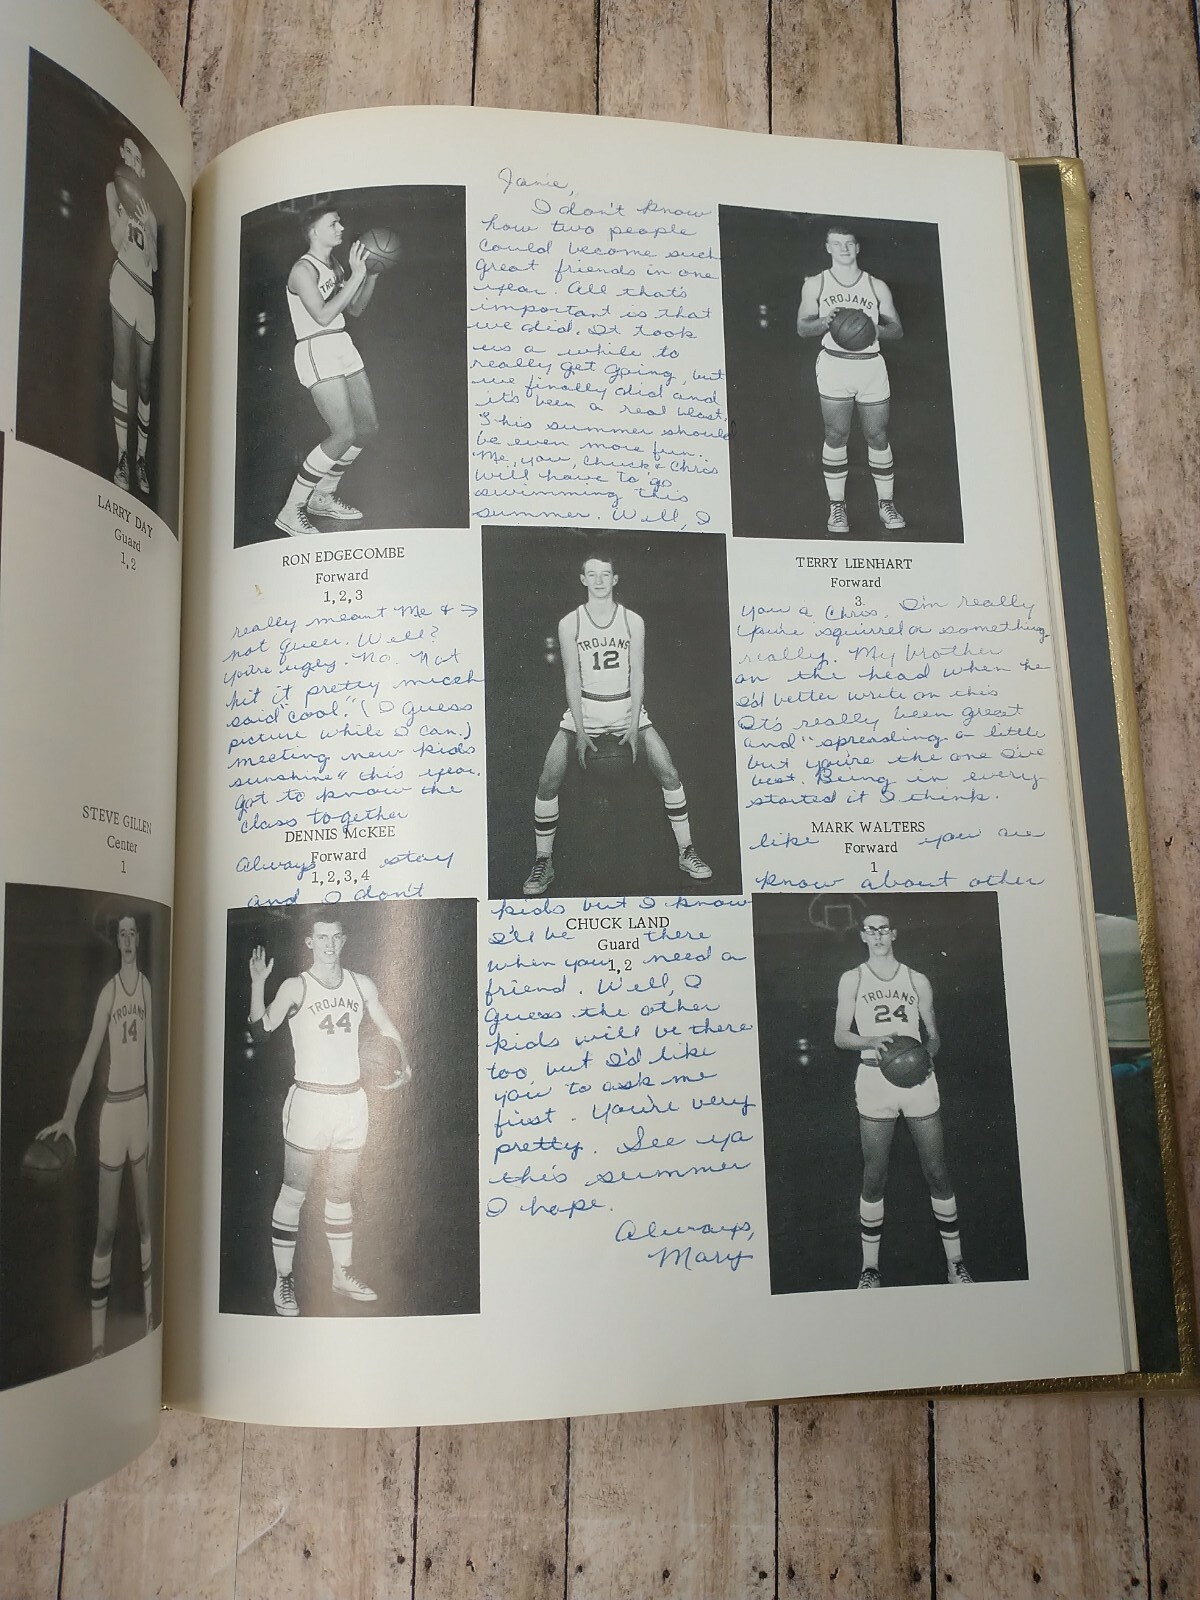 LARRY DAY
Guard
1,2
10
STEVE GILLEN
Center
1
TROJANS
14
Janie,
I don't know
how two people
could become such
great friends in one
year. All that's
important is that
we did. It took
us a while to
really get going, but
we finally did and
it's been a real blast.
This summer should
be even more fun.
Me, you, Chuck & Chris
will have to go
swimming this
summer. Well, I
TRO
RON EDGECOMBE
Forward
1,2,3
TROJANS
TERRY LIENHART
Forward
3
really meant Me & →
not queer. Well?
you're ugly. No. Not
hit it pretty much
said "cool." (I guess
picture while I can.)
meeting new kids
sunshine" this year.
got to know the
class together
DENNIS McKEE
Forward
1,2,3,4
always stay
and I don't
TROJANS
12
you & Chris. I'm really
you're squirrel or something
really. My brother
on the head when he
I'd better write on this
It's really been great
and "spreading a little
but you're the one I've
best. Being in every
started it I think.
MARK WALTERS
Forward
1
like you are
know about other
TROJANS
44
kids but I know
CHUCK LAND
Guard
1,2
I'll be there
when you need a
friend. Well, I
guess the other
kids will be there
too, but I'd like
you to ask me
first. You're very
pretty. See ya
this summer
I hope.
Always,
Mary
TROJANS
24